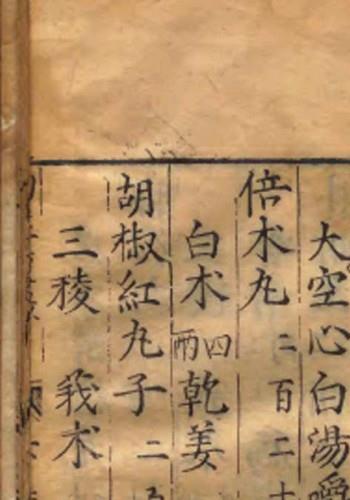 大空心白湯
倍术丸 二百二十
白术 四兩 乾姜
胡椒紅丸子 二
三稜 莪术